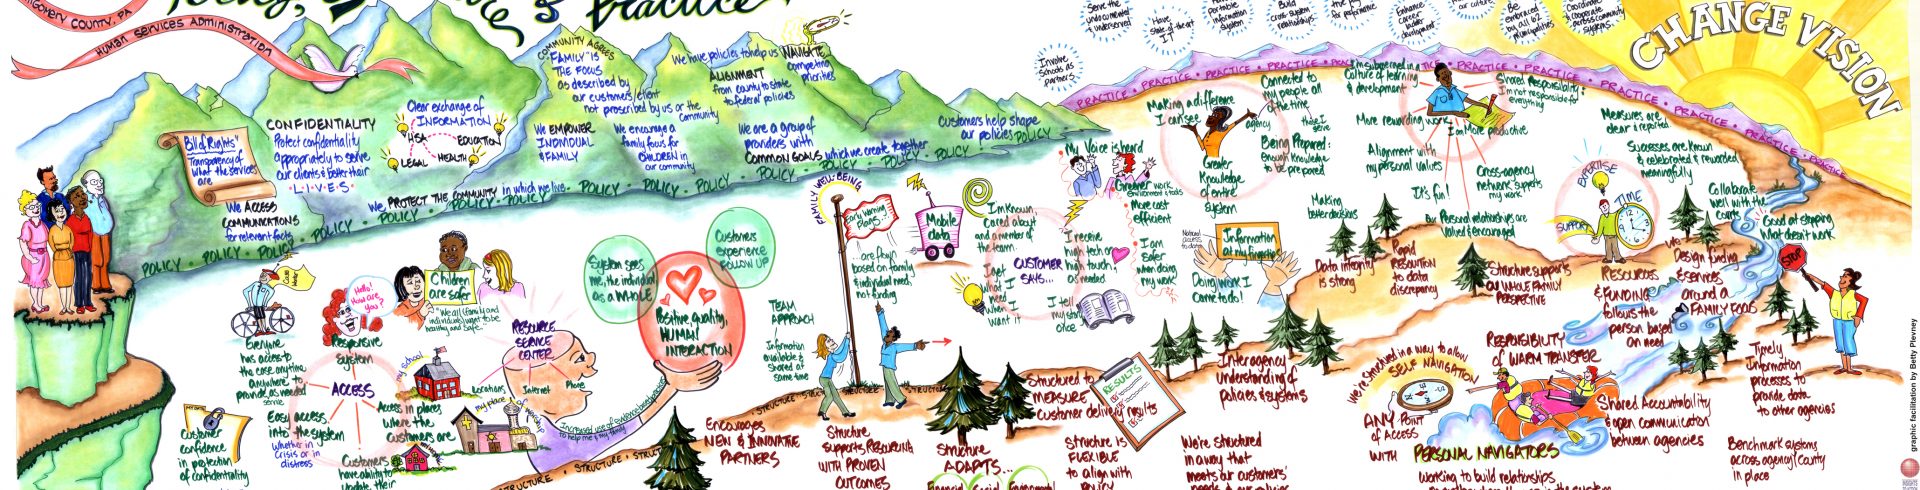 MONTGOMERY COUNTY, PA
HUMAN SERVICES ADMINISTRATION
& Practice
CHANGE VISION
Bill of Rights"
Transparency of
what the services
are
CONFIDENTIALITY
Protect confidentiality
appropriately to serve
our clients & better their
LIVES
Clear exchange of
INFORMATION
HSA
EDUCATION
LEGAL
HEALTH
We ACCESS
COMMUNICATIONS
for relevant facts
We PROTECT THE COMMUNITY in which we live
COMMUNITY AGREES
"FAMILY" IS
THE FOCUS
as described by
our customers/client
not proscribed by us or the
community
We EMPOWER
INDIVIDUAL
& FAMILY
We encourage a
family focus for
CHILDREN in
our community
We have policies to help us NAVIGATE
competing
priorities
ALIGNMENT
from county to state
to federal policies
We are a group of
providers with
COMMON GOALS which we create together
Customers help shape
our policies
POLICY • POLICY • POLICY • POLICY • POLICY • POLICY
Involve
schools as
partners
Serve the
undocumented
& underserved
Have
state of the art
I.T.
portable
information
system
Build
cross system
relationships
Enhance
career
ladder
development
our culture
Be
embraced
by all 62
municipalities
Coordinate
& cooperate
across community
systems
PRACTICE • PRACTICE • PRACTICE • PRACTICE • PRACTICE • PRACTICE
Making a difference
I can see
Connected to
my people all
of the time
agency
those I
serve
Being Prepared:
enough knowledge
to be prepared
Greater
Knowledge
of entire
system
I'm submerged in a
culture of learning
& development
More rewarding work
I am More productive
Alignment with
my personal values
It's fun!
Cross-agency
network supports
my work
Our Personal relationships are
valued & encouraged
Shared Responsibility:
I'm not responsible for
everything
Measures are
clear & reported
Successes are known
& celebrated & rewarded
meaningfully
EXPERTISE
TIME
SUPPORT
RESOURCES
& FUNDING
follows the
person based
on need
Collaborate
well with the
courts
Good at stopping
what doesn't work
STOP
We
Design funding
& services
around a
FAMILY FOCUS
Timely
Information
processes to
provide data
to other agencies
Benchmark systems
across agency/county
in place
graphic facilitation by Betty Plevney
Everyone
has access to
the case anytime
anywhere to
provide as needed
service
Hello!
How are
you?
Responsive
System
ACCESS
Easy access
into the system
whether in
crisis or in
distress
Access in places
where the
customers are
Customers
have ability to
update their
Customer
confidence
in protection
of confidentiality
Children
are safer
"We all (family and
individual) want to be
healthy and safe."
my school
my place of worship
RESOURCE
SERVICE
CENTER
Locations
Internet
Phone
Increased use of evidence based practices
to help me & my family
System sees
me, the individual
as a WHOLE
Customers
experience
FOLLOW UP
Positive quality,
HUMAN
INTERACTION
TEAM
APPROACH
Information
available &
shared at
same time
FAMILY WELL-BEING
Early Warning
Flags...!
... are flown
based on family
& individual need,
not funding
Mobile
data
I'm known,
cared about
and a member of
the team.
CUSTOMER
SAYS...
I get
what I
need
when I
want it
I tell
my story
once
I receive
high tech or
high touch
as needed
My Voice is heard
Greener work
environment & tools
More cost
efficient
I am
safer
when doing
my work
Natural
access
to data
Information
at my fingertips
Doing work I
came to do!
Making
better decisions
Data integrity
is strong
Rapid
RESOLUTION
to data
discrepancy
Structure supports
OUR WHOLE FAMILY
PERSPECTIVE
STRUCTURE • STRUCTURE • STRUCTURE
Encourages
NEW & INNOVATIVE
PARTNERS
Structure
supports RESOURCING
WITH PROVEN
OUTCOMES
Structure
ADAPTS...
Structured to
MEASURE
customer delivery results
RESULTS
Structure is
FLEXIBLE
to align with
POLICY
Interagency
understanding of
policies & systems
We're structured
in a way that
meets our customers'
We're structured in a way to allow
SELF NAVIGATION
ANY POINT
OF ACCESS
WITH PERSONAL NAVIGATORS
working to build relationships
RESPONSIBILITY
of WARM TRANSFER
Shared Accountability
& open communication
between agencies